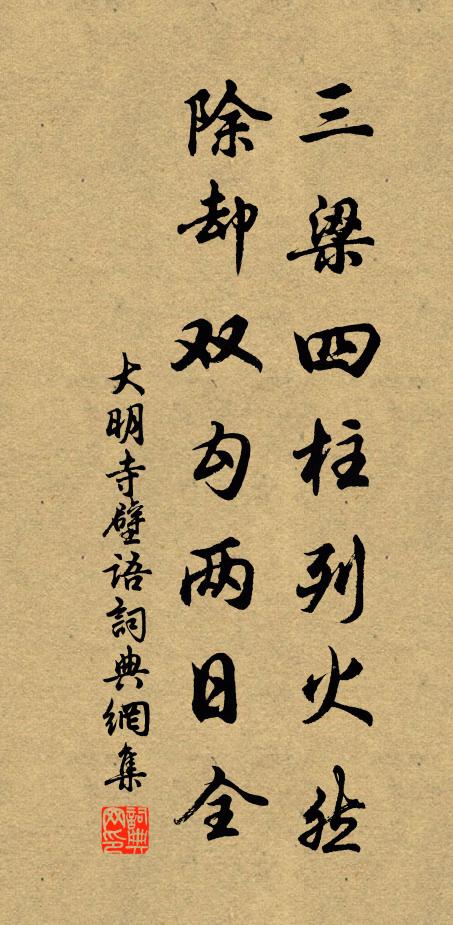 三梁四柱列火然
除却双勾两日全
大明寺壁语詞典網集
詞典网印